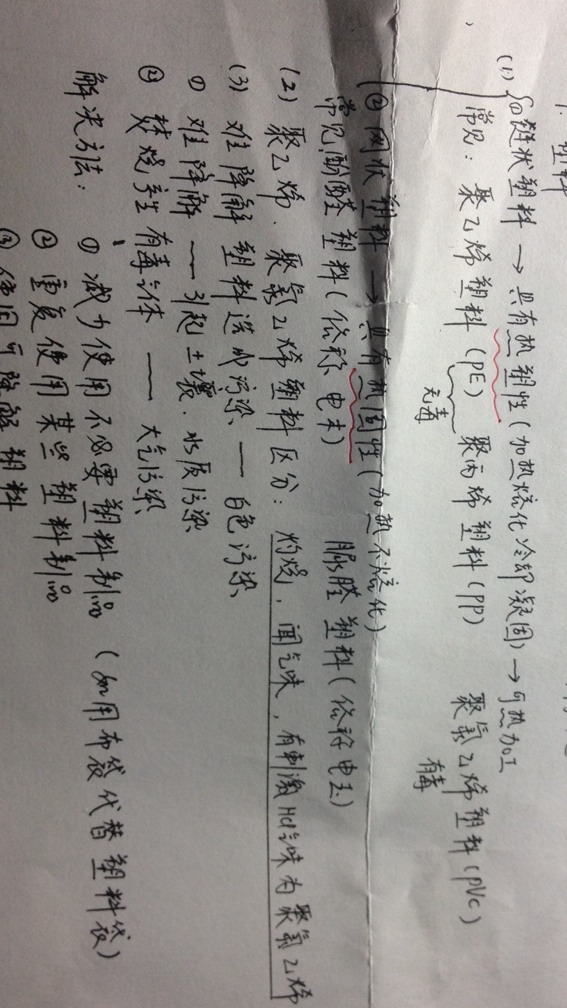 塑料
(1) ①链状塑料 → 具有热塑性(加热熔化冷却凝固) → 可热加工
常见: 聚乙烯塑料(PE) 聚丙烯塑料(PP) 聚氯乙烯塑料(PVC)
无毒 有毒
②网状塑料 → 具有热固性(加热不熔化)
常见酚醛塑料(俗称电木) 脲醛塑料(俗称电玉)
(2) 聚乙烯、聚氯乙烯塑料区分: 灼烧,闻气味,有刺激HCl气味为聚氯乙烯
(3) 难降解塑料造成污染 — 白色污染
① 难降解 — 引起土壤、水质污染
② 焚烧产生有毒气体 — 大气污染
解决方法: ① 减少使用不必要塑料制品 (如用布袋代替塑料袋)
② 重复使用某些塑料制品
③ 使用可降解塑料